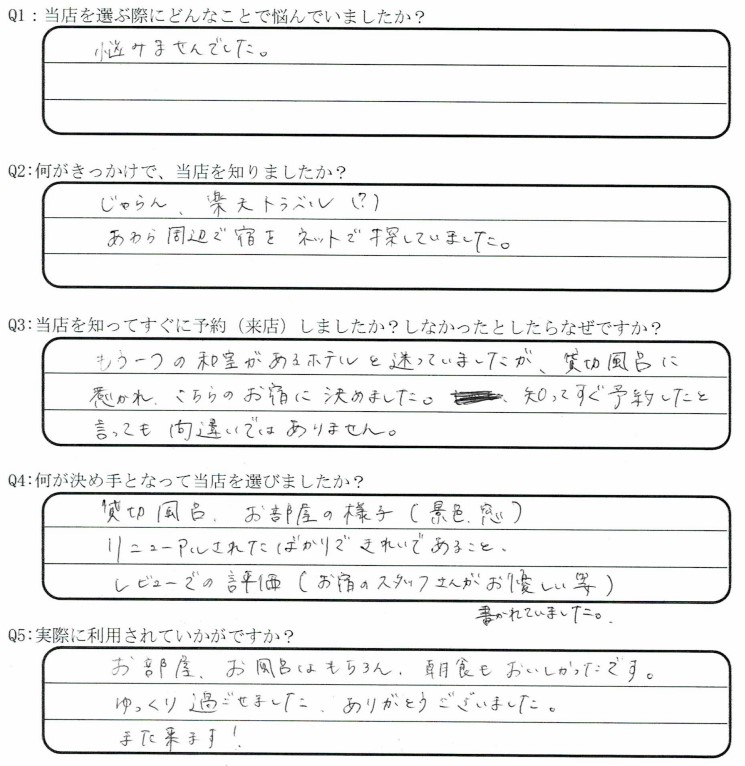 Q1：当店を選ぶ際にどんなことで悩んでいましたか？
悩みませんでした。
Q2:何がきっかけで、当店を知りましたか？
じゃらん、楽天トラベル（？）
あわら周辺で宿をネットで探していました。
Q3:当店を知ってすぐに予約（来店）しましたか？しなかったとしたらなぜですか？
もう一つの和室があるホテルと迷っていましたが、貸切風呂に
惹かれ、こちらのお宿に決めました。 、知ってすぐ予約したと
言っても間違いではありません。
Q4:何が決め手となって当店を選びましたか？
貸切風呂、お部屋の様子（景色、窓）
リニューアルされたばかりできれいであること、
レビューでの評価（お宿のスタッフさんがお優しい等）
書かれていました。
Q5:実際に利用されていかがですか？
お部屋、お風呂はもちろん、朝食もおいしかったです。
ゆっくり過ごせました、ありがとうございました。
また来ます！